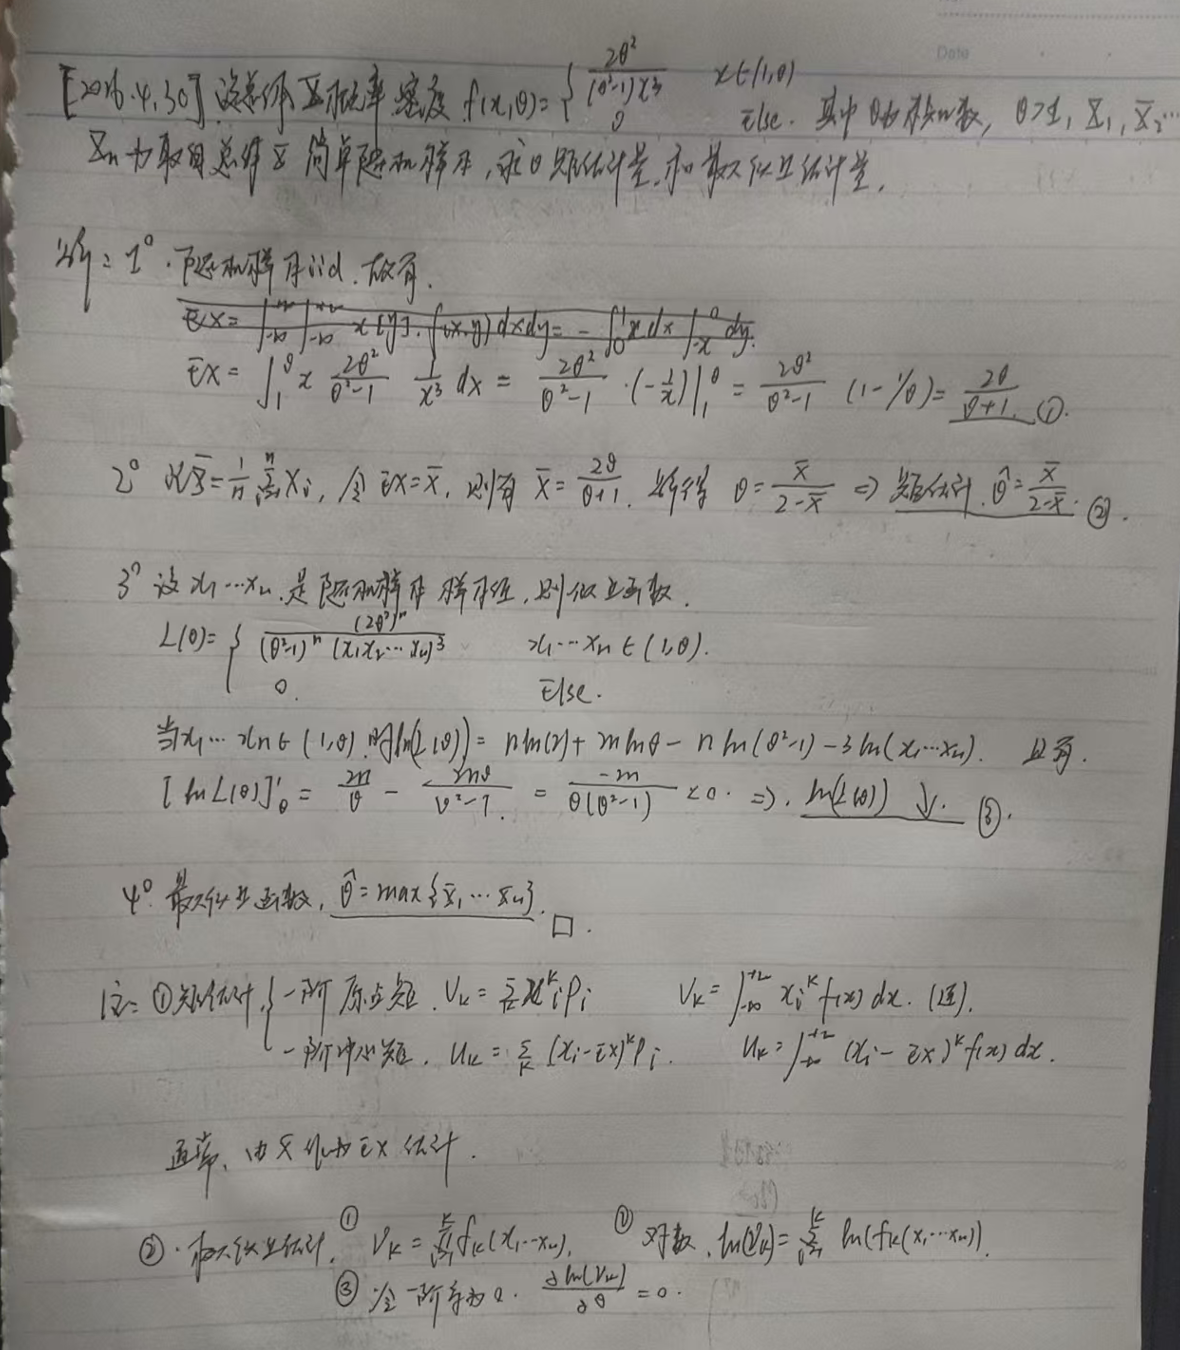 Date
[2026.4.30] 设总体X概率密度 f(x,θ)={ 2θ²/((θ²-1)x³) x∈(1,θ)
0 Else. 其中θ为未知参数, θ>1, X₁, X₂…
Xn为取自总体X简单随机样本, 求θ矩估计量, 和最大似然估计量.
解: 1° 随机样本iid. 故有.
EX = ∫₁^θ x 2θ²/(θ²-1) 1/x³ dx = 2θ²/(θ²-1) ·(-1/x)|₁^θ = 2θ²/(θ²-1) (1-1/θ) = 2θ/(θ+1). ①.
2° 以X̄=1/n Σᵢ₌₁ⁿ Xᵢ, 令EX=X̄, 则有 X̄=2θ/(θ+1). 解得 θ=X̄/(2-X̄) ⇒ 矩估计 θ̂=X̄/(2-X̄). ②.
3° 设x₁…xn是随机样本样本值, 则似然函数.
L(θ)={ (2θ²)ⁿ/((θ²-1)ⁿ(x₁x₂…xn)³) x₁…xn∈(1,θ).
0. Else.
当x₁…xn∈(1,θ)时ln(L(θ))= nln(2)+2nlnθ-nln(θ²-1)-3ln(x₁…xn). 且有.
[lnL(θ)]'θ = 2n/θ - 2nθ/(θ²-1) = -2n/(θ(θ²-1)) <0. ⇒. ln(L(θ)) ↓. ③.
4°. 最大似然函数, θ̂=max{X₁…Xn}. □.
注: ①矩估计{ 一阶原点矩. Vk=Σ xᵢᵏpᵢ Vk=∫₋∞^+∞ xᵢᵏf(x)dx. (连).
一阶中心矩. Uk=Σk (xᵢ-EX)ᵏPᵢ. Uk=∫₋∞^+∞ (xᵢ-EX)ᵏf(x)dx.
通常, 由X̄作为EX估计.
②. 最大似然估计. ① Vk= fk(x₁…xn). ② 对数. ln(Vk)=Σᵢ₌₁ᵏ ln(fk(x₁…xn)).
③ 令一阶导为0. ∂ln(Vk)/∂θ=0.